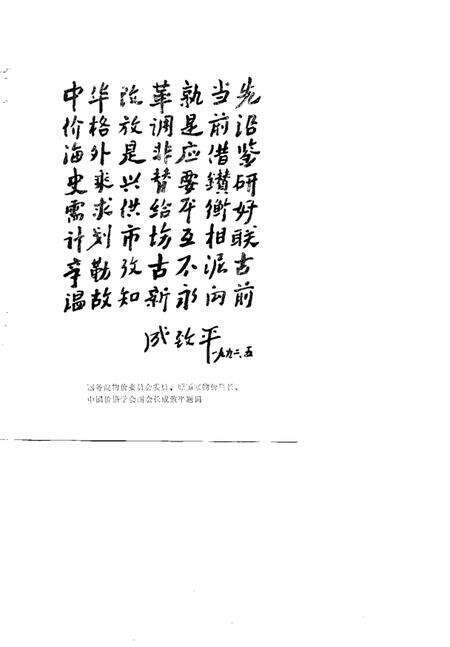 中华改革孰当先
价格放调是前沿
海外是非应借鉴
史乘兴替要鑽研
需求供给平衡好
计划市场互相联
辛勤攻古不泥古
温故知新永向前
成致平
一九九二.五
国务院物价委员会委员、物价局长、
中国价格学会副会长成致平题词